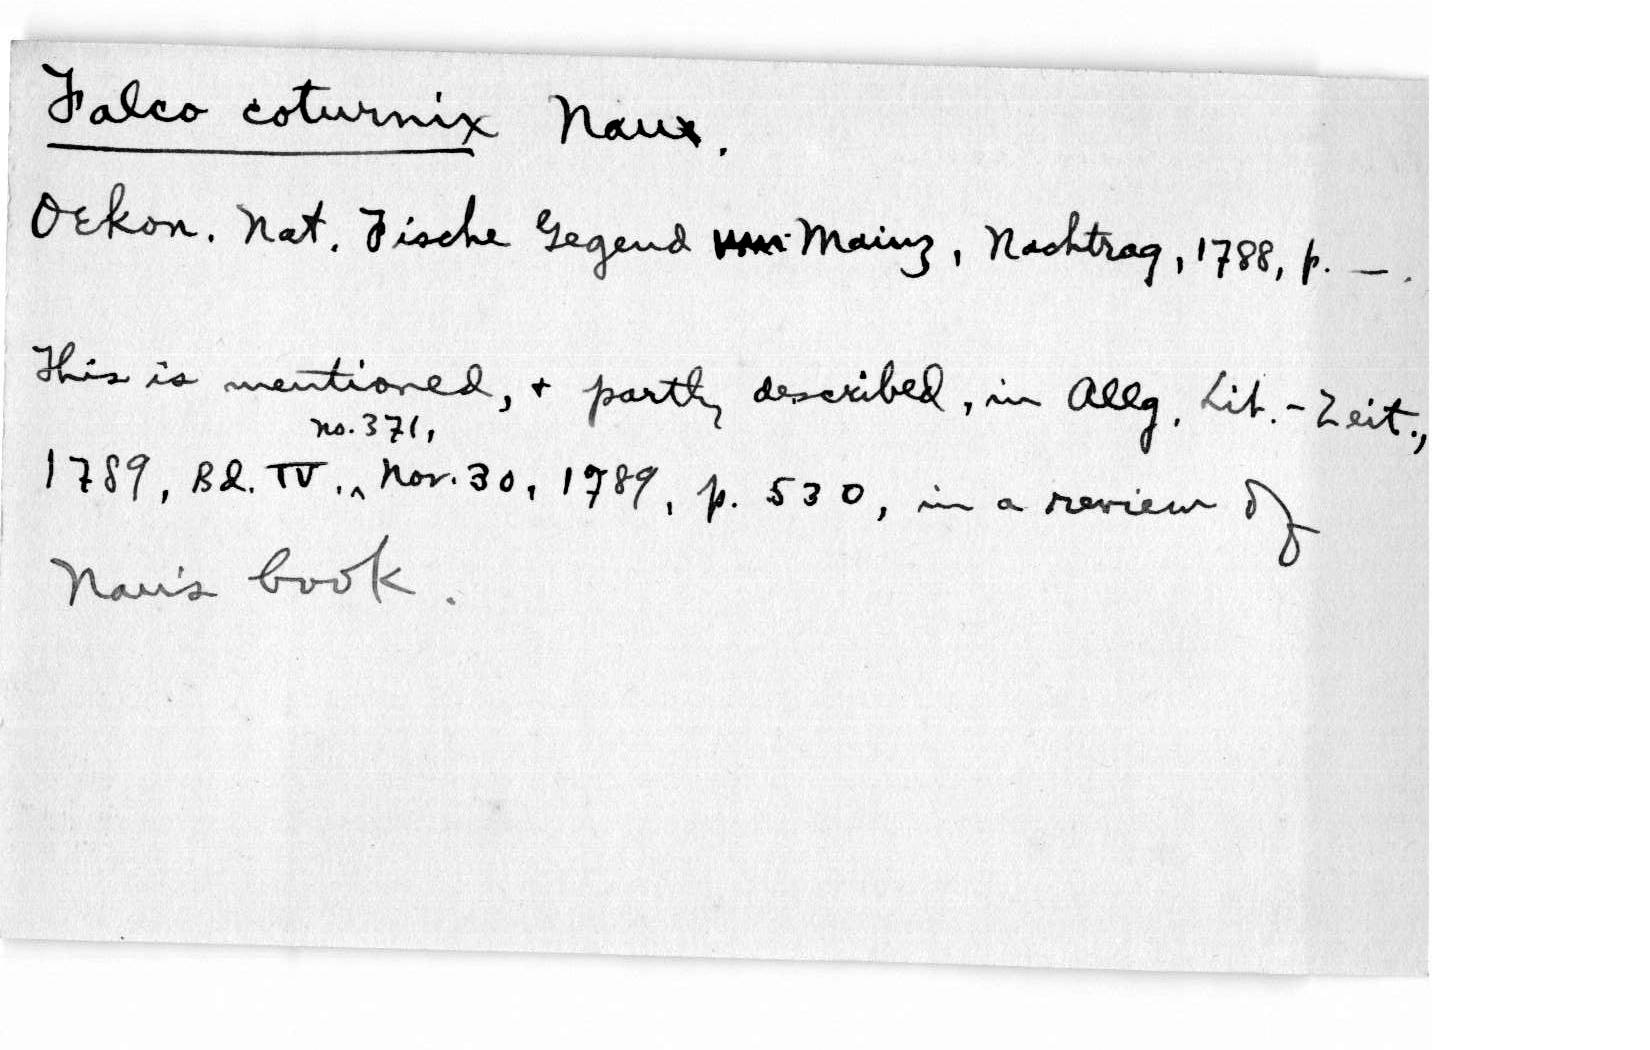 Falco coturnix Nau.
Oekon. Nat. Fische Gegend Mainz, Nachtrag, 1788, p. —.
This is mentioned, + partly described, in Allg. Lit.-Zeit.,
no. 371,
1789, Bd. IV., ^ Nov. 30, 1789, p. 530, in a review of
Nau's book.